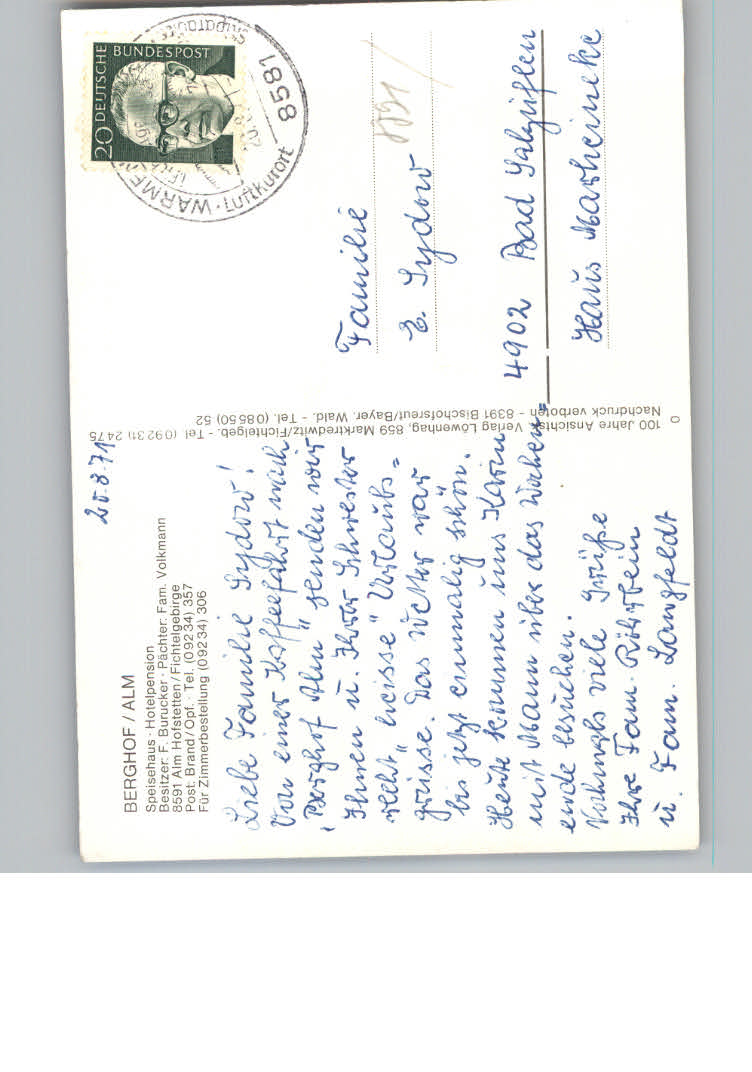 BERGHOF / ALM
Speisehaus · Hotelpension
Besitzer: F. Burucker · Pächter: Fam. Volkmann
8591 Alm Hofstetten/Fichtelgebirge
Post: Brand/Opf. · Tel. (09234) 357
Für Zimmerbestellung (09234) 306
20.8.71
Liebe Familie Sydow!
Von einer Kaffeefahrt nach
"Berghof Alm" senden wir
Ihnen u. Ihrer Schwester
recht "heisse" Urlaubs=
grüsse. Das Wetter war
bis jetzt einmalig schön.
Heute kommen uns Karin
mit Mann über das Wochen=
ende besuchen.
Nochmals viele Grüße
Ihre Fam. Röhrbein
u. Fam. Langfeldt
100 Jahre Ansichtsk. Verlag Löwenhag, 859 Marktredwitz/Fichtelgeb. - Tel. (09231) 2475
Nachdruck verboten - 8391 Bischofsreut/Bayer. Wald. - Tel. (08550) 52
20 DEUTSCHE BUNDESPOST
8581
WARME
· Luftkurort
Familie
E. Sydow
4902 Bad Salzuflen
Haus Marheineke